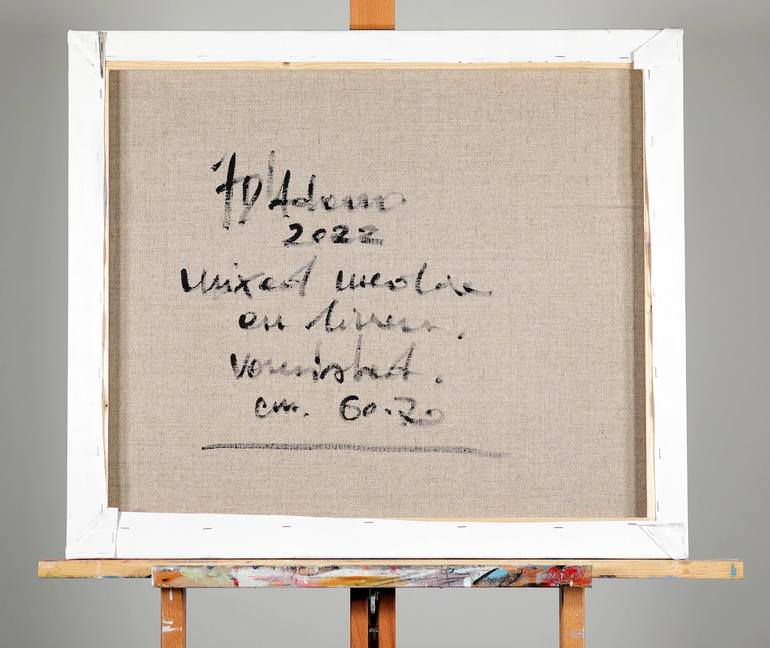 D'Adamo
2022
mixed media
on linen.
varnished.
cm. 60.70